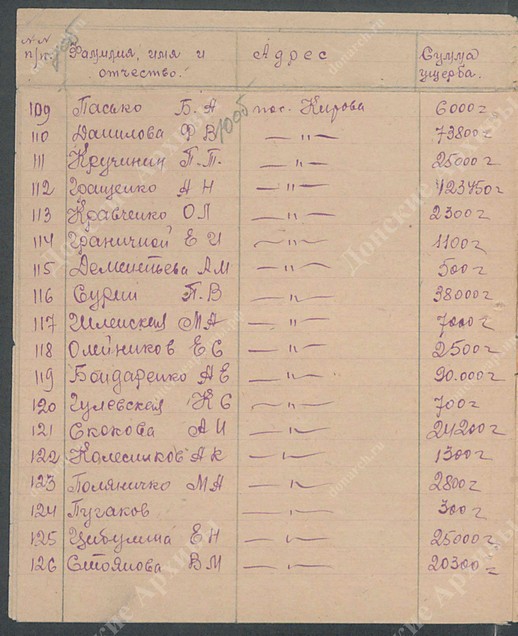 №№ п/п. Фамилия, имя и отчество. Адрес Сумма ущерба.
109 Пасько Б. А пос. Кирова 6000 г
110 Данилова Ф В — " — 73800 г
111 Кручинин П. П. — " — 25000 г
112 Гращенко А Н — " — 123450 г
113 Кравченко О Л — " — 2300 г
114 Граничной Е И — " — 1100 г
115 Дементьева А М — " — 500 г
116 Сурин П. В — " — 38000 г
117 М А — " — 7000 г
118 Олейников Е С — " — 2500 г
119 Бондаренко А Е — " — 90.000 г
120 Гулевская К С — " — 700 г
121 Скокова А И — " — 24200 г
122 Колесников А К — " — 1300 г
123 Поляничко М А — " — 2800 г
124 Пугаков — " — 300 г
125 Цибулина Е Н — " — 25000 г
126 Стоянова В М — " — 20300 г
Донские Архивы
donarch.ru